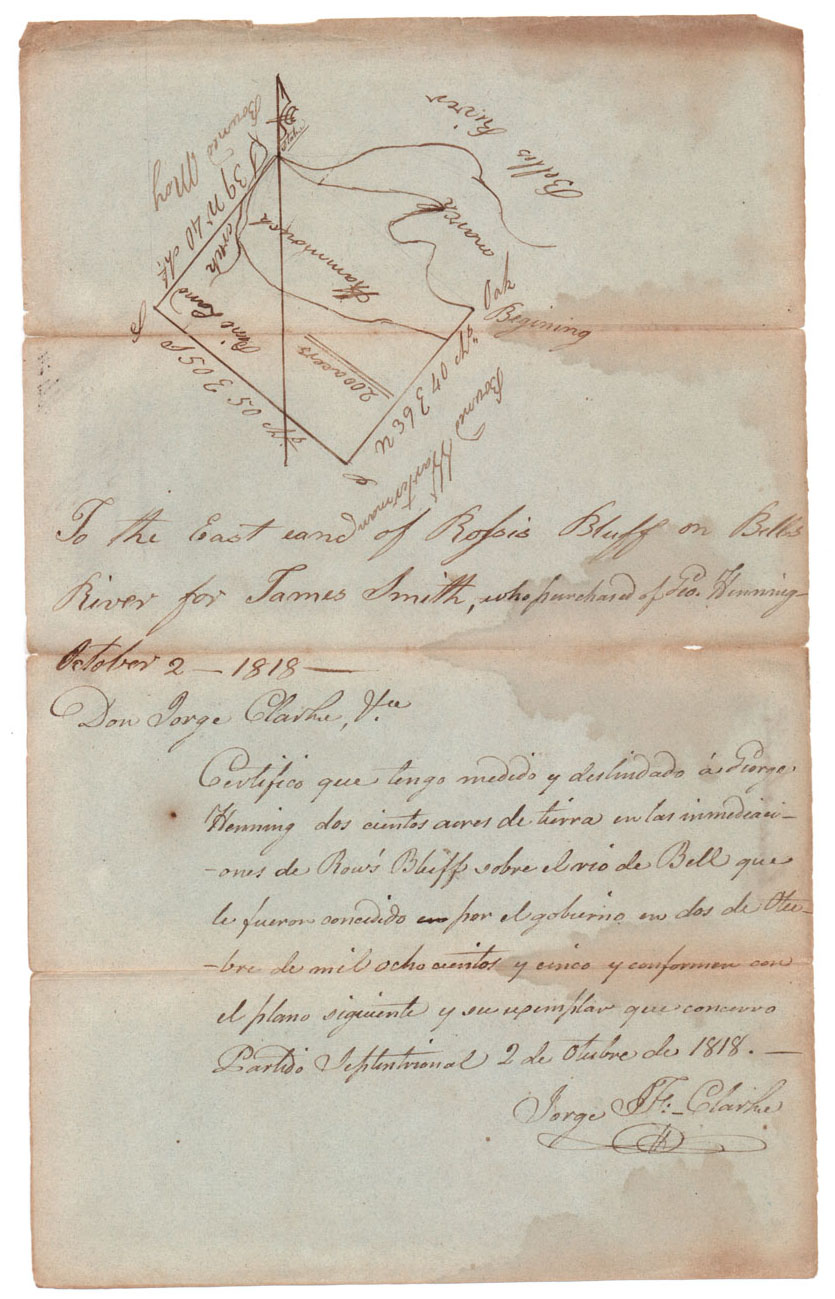 Bells River
Stake
Bound May
S 39 W 40 ch.s
marsh
Hammouck
Oak
Begining
Pine Land
200 acers
S 50 E 50 ch.s
N 39 E 40 ch.s
Bound
To the East eand of Rossis Bluff on Bells
River for James Smith, who purchased of Geo. Henning
October 2 — 1818 —
Don Jorge Clarke, &ca
Certifico que tengo medido y deslindado á George
Henning dos cientos acres de tierra en las inmediaci-
-ones de Row's Bluff sobre el rio de Bell que
le fueron concedido por el gobierno en dos de Otu-
-bre de mil ocho cientos y cinco y conformen con
el plano siguiente y su exemplar que concerro
Partido Septentrional 2 de Otubre de 1818. —
Jorge J. F. Clarke